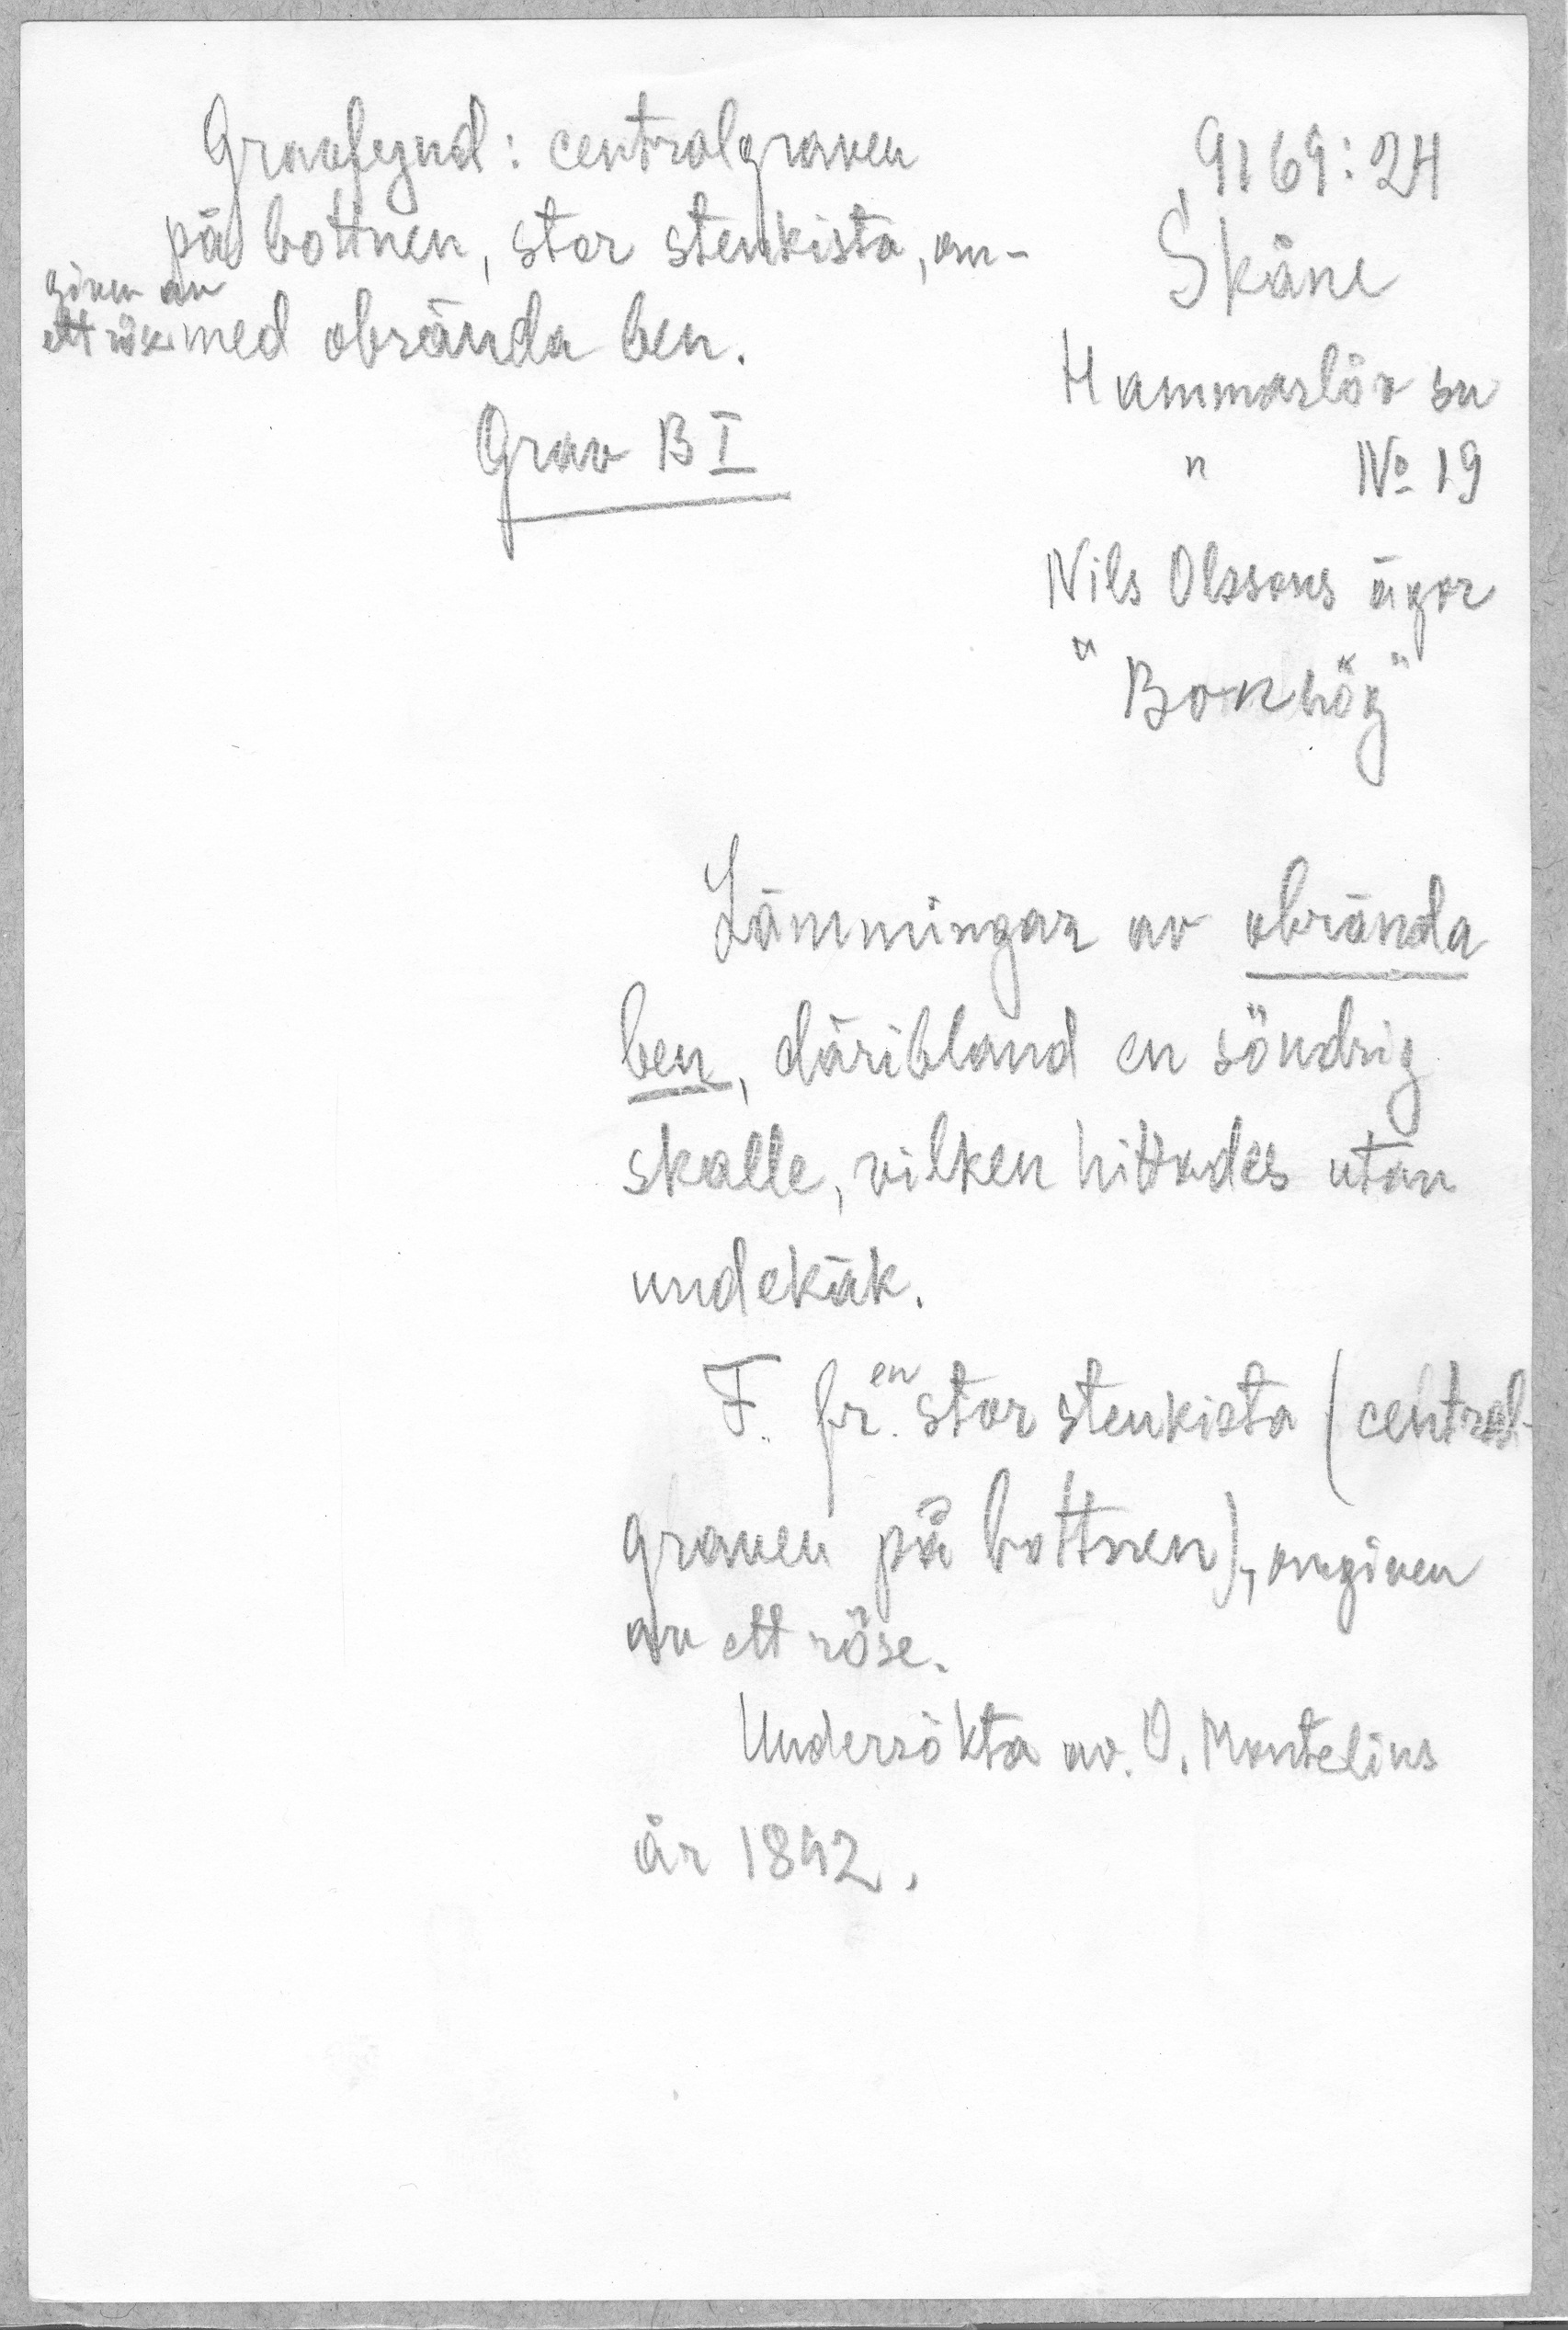 Gravfynd: centralgraven
på bottnen, stor stenkista, om-
given av
ett röse med obrända ben.
Grav B I
9169:24
Skåne
Hammarlöv sn
" No 19
Nils Olssons ägor
"Bonhög"
Lämningar av obrända
ben, däribland en söndrig
skalle, vilken hittades utan
undekäk.
F. fr. en stor stenkista (central-
graven på bottnen), omgiven
av ett röse.
Undersökta av. O. Montelius
år 1892.